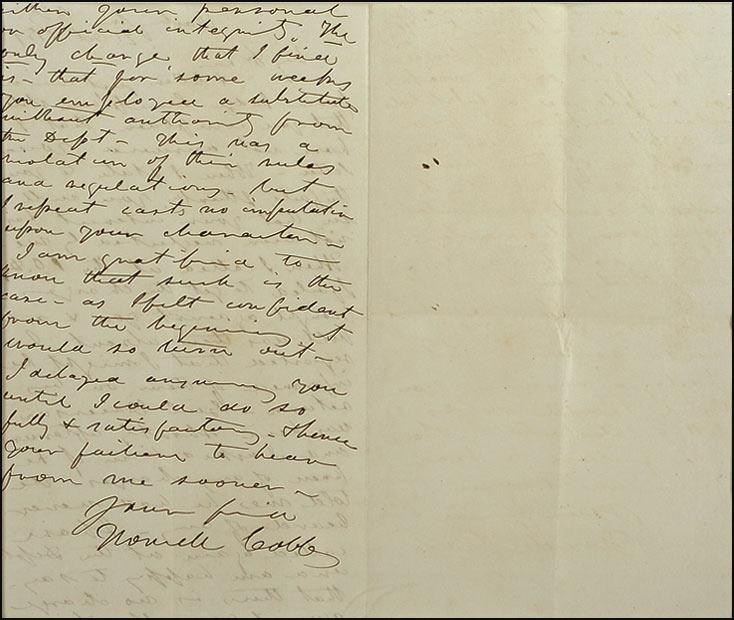 either your personal
or official integrity. The
only change that I find
is - that for some weeks
you employed a substitute
without authority from
the Dept - This was a
violation of their rules
and regulations - but
I repeat casts no imputation
upon your character -
I am gratified to
know that such is the
case - as I felt confident
from the beginning it
would so turn out -
I delayed answering you
until I could do so
fully & satisfactory - Hence
your failure to hear
from me sooner -
Your frind
Howell Cobb